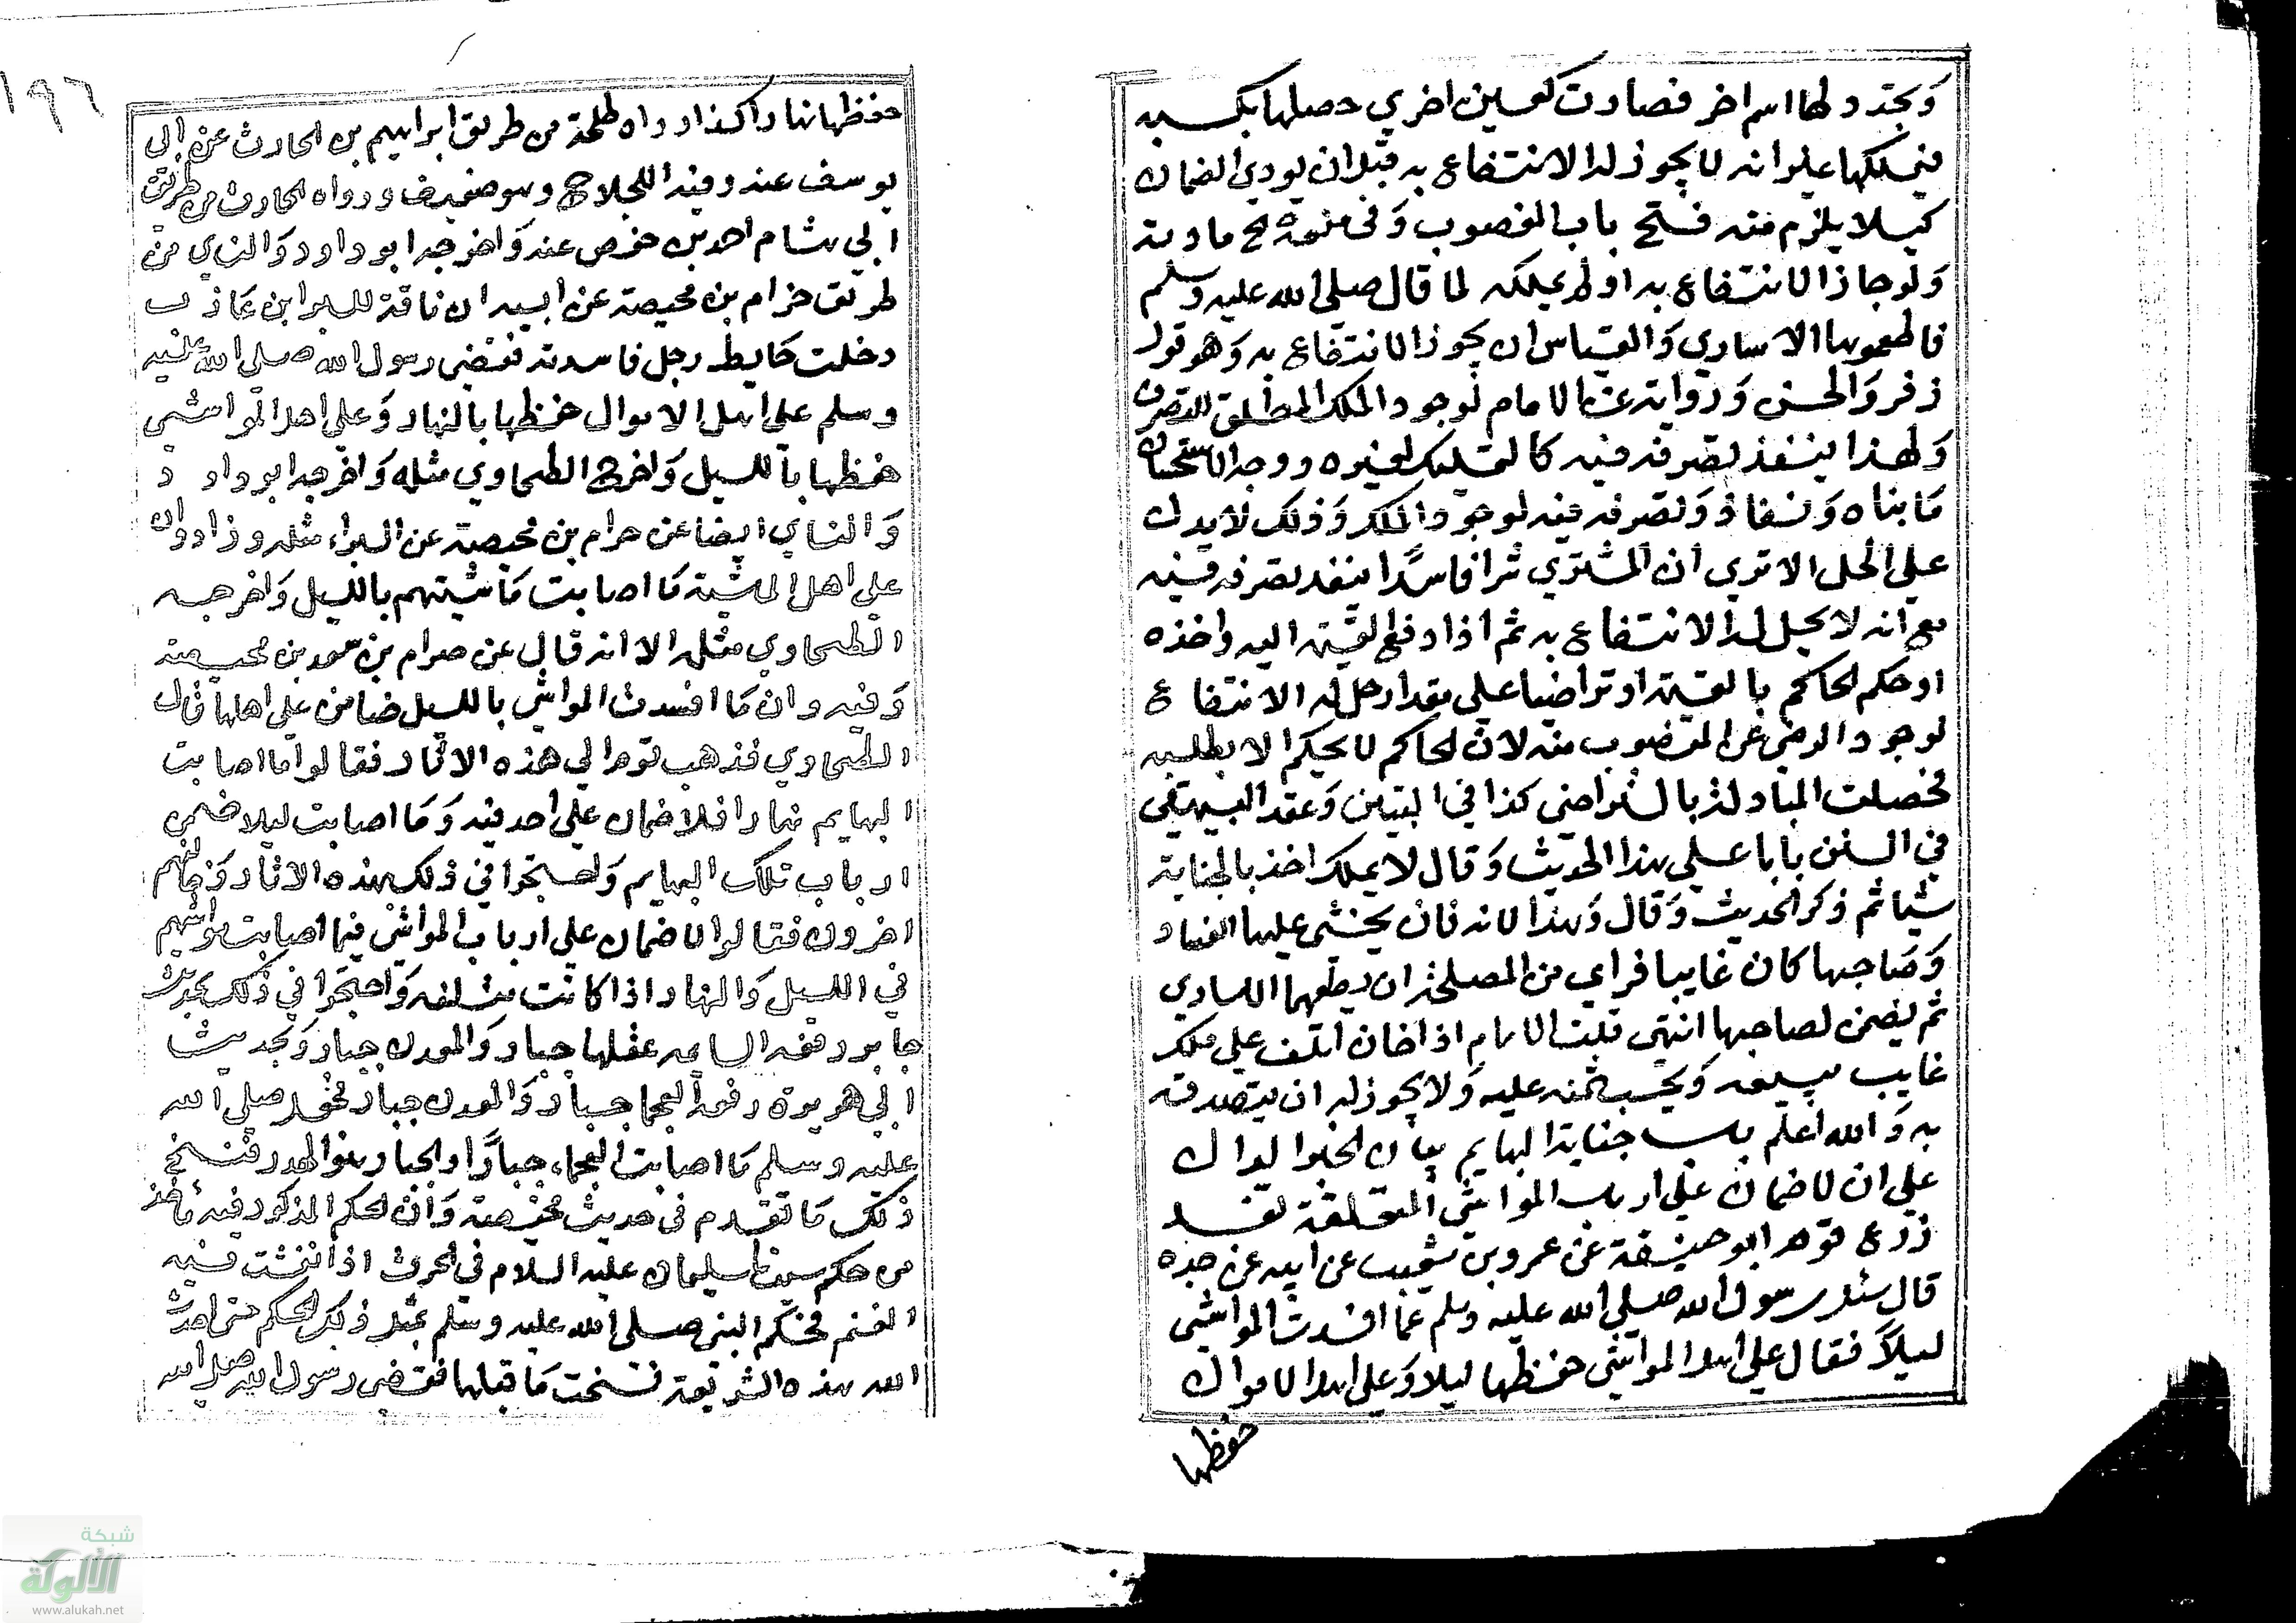 وتجدد لها اسم اخر فصارت كعين اخري حصلها بكسبه
فيملكها غير انه لا يجوز له الانتفاع به قبل ان يودي الضمان
كيلا يلزم منه فتح باب الغصوب وفي منعه حسم مادته
ولو جاز الانتفاع به او لم يملكه لما قال صلى الله عليه وسلم
فاطعموها الاساري والقياس ان يجوز الانتفاع به وهو قول
زفر والحسن ورواية عن الامام لوجود الملك المطلق للتصرف
ولهذا ينفذ تصرفه فيه كالتمليك لغيره ووجه الاستحسان
ما بيناه ونفاذ وتصرفه فيه لوجود الملك وذلك لا يدل
على الحل الا تري ان المشتري شرا فاسدا ينفذ تصرفه فيه
مع انه لا يحل له الانتفاع به ثم اذا دفع القيمة اليه واخذه
او حكم الحاكم بالقيمة او تراضيا على مقدار حل له الانتفاع
لوجود الرضي من المغضوب منه لان الحاكم لا يحكم الا بطلبه
فحصلت المبادلة بالتراضي كذا في التبيين وعقد البيهقي
في السنن بابا على هذا الحديث وقال لا يملك اخذ بالجناية
شيا ثم ذكر الحديث وقال وهذا لانه فان يخشى عليها الفساد
وصاحبها كان غايبا فراي من المصلحة ان يطعمها الاساري
ثم يضمن لصاحبها انتهى قلت الامام اذا خاف التلف على ملك
غايب يبيعه ويحبس ثمنه عليه ولا يجوز له ان يتصدق
به والله اعلم باب جناية البهايم بيان الخبر الدال
على ان لا ضمان على ارباب المواشي المتعلقة
زرع قوم ابو حنيفة عن عمرو بن شعيب عن ابيه عن جده
قال سئل رسول الله صلى الله عليه وسلم عما افسدت المواشي
ليلا فقال على اهل المواشي حفظها ليلا وعلى اهل الاموال
حفظها
١٩٦
حفظها نهارا كذا رواه طلحة من طريق ابراهيم بن الحارث عن ابي
يوسف عنه وفيه اللجلاج وهو ضعيف ورواه الحارث من طريق
ابي هشام احمد بن حفص عنه واخرجه ابو داود والنساي من
طريق حزام بن محيصة عن ابيه ان ناقة للبرا بن عازب
دخلت حايط رجل فافسدته فقضى رسول الله صلى الله عليه
وسلم على اهل الاموال حفظها بالنهار وعلى اهل المواشي
حفظها بالليل واخرج الطحاوي مثله واخرجه ابو داود
والنساي ايضا عن حرام بن محيصة عن البراء مثله وزاد وان
على اهل الماشية ما اصابت ماشيتهم بالليل واخرجه
الطحاوي مثله الا انه قال عن حرام بن سعد بن محيصة
وفيه وان ما افسدت المواشي بالليل ضامن على اهلها قال
الطحاوي فذهب قوم الي هذه الاثار فقالوا ما اصابت
البهايم نهارا فلا ضمان على احد فيه وما اصابت ليلا ضمن
ارباب تلك البهايم واحتجوا في ذلك بهذه الاثار وخالفهم
اخرون فقالوا لا ضمان على ارباب المواشي فيما اصابت مواشيهم
في الليل والنهار اذا كانت منفلته واحتجوا في ذلك بحديث
جابر رفعه السايمه عقلها جبار والمعدن جبار وبحديث
ابي هريرة رفعه العجما جبار والمعدن جبار فجعل صلى الله
عليه وسلم ما اصابت العجماء جبارا والجبار هو الهدر فنسخ
ذلك ما تقدم في حديث محيصة وان الحكم المذكور فيه ماخوذ
من حكم سيدنا سليمان عليه السلام في الحرث اذا نفشت فيه
الغنم فحكم النبي صلى الله عليه وسلم بمثل ذلك الحكم حتى احدث
الله هذه الشريعة فنسخت ما قبلها فقضى رسول الله صلى الله
شبكة
الألوكة
www.alukah.net